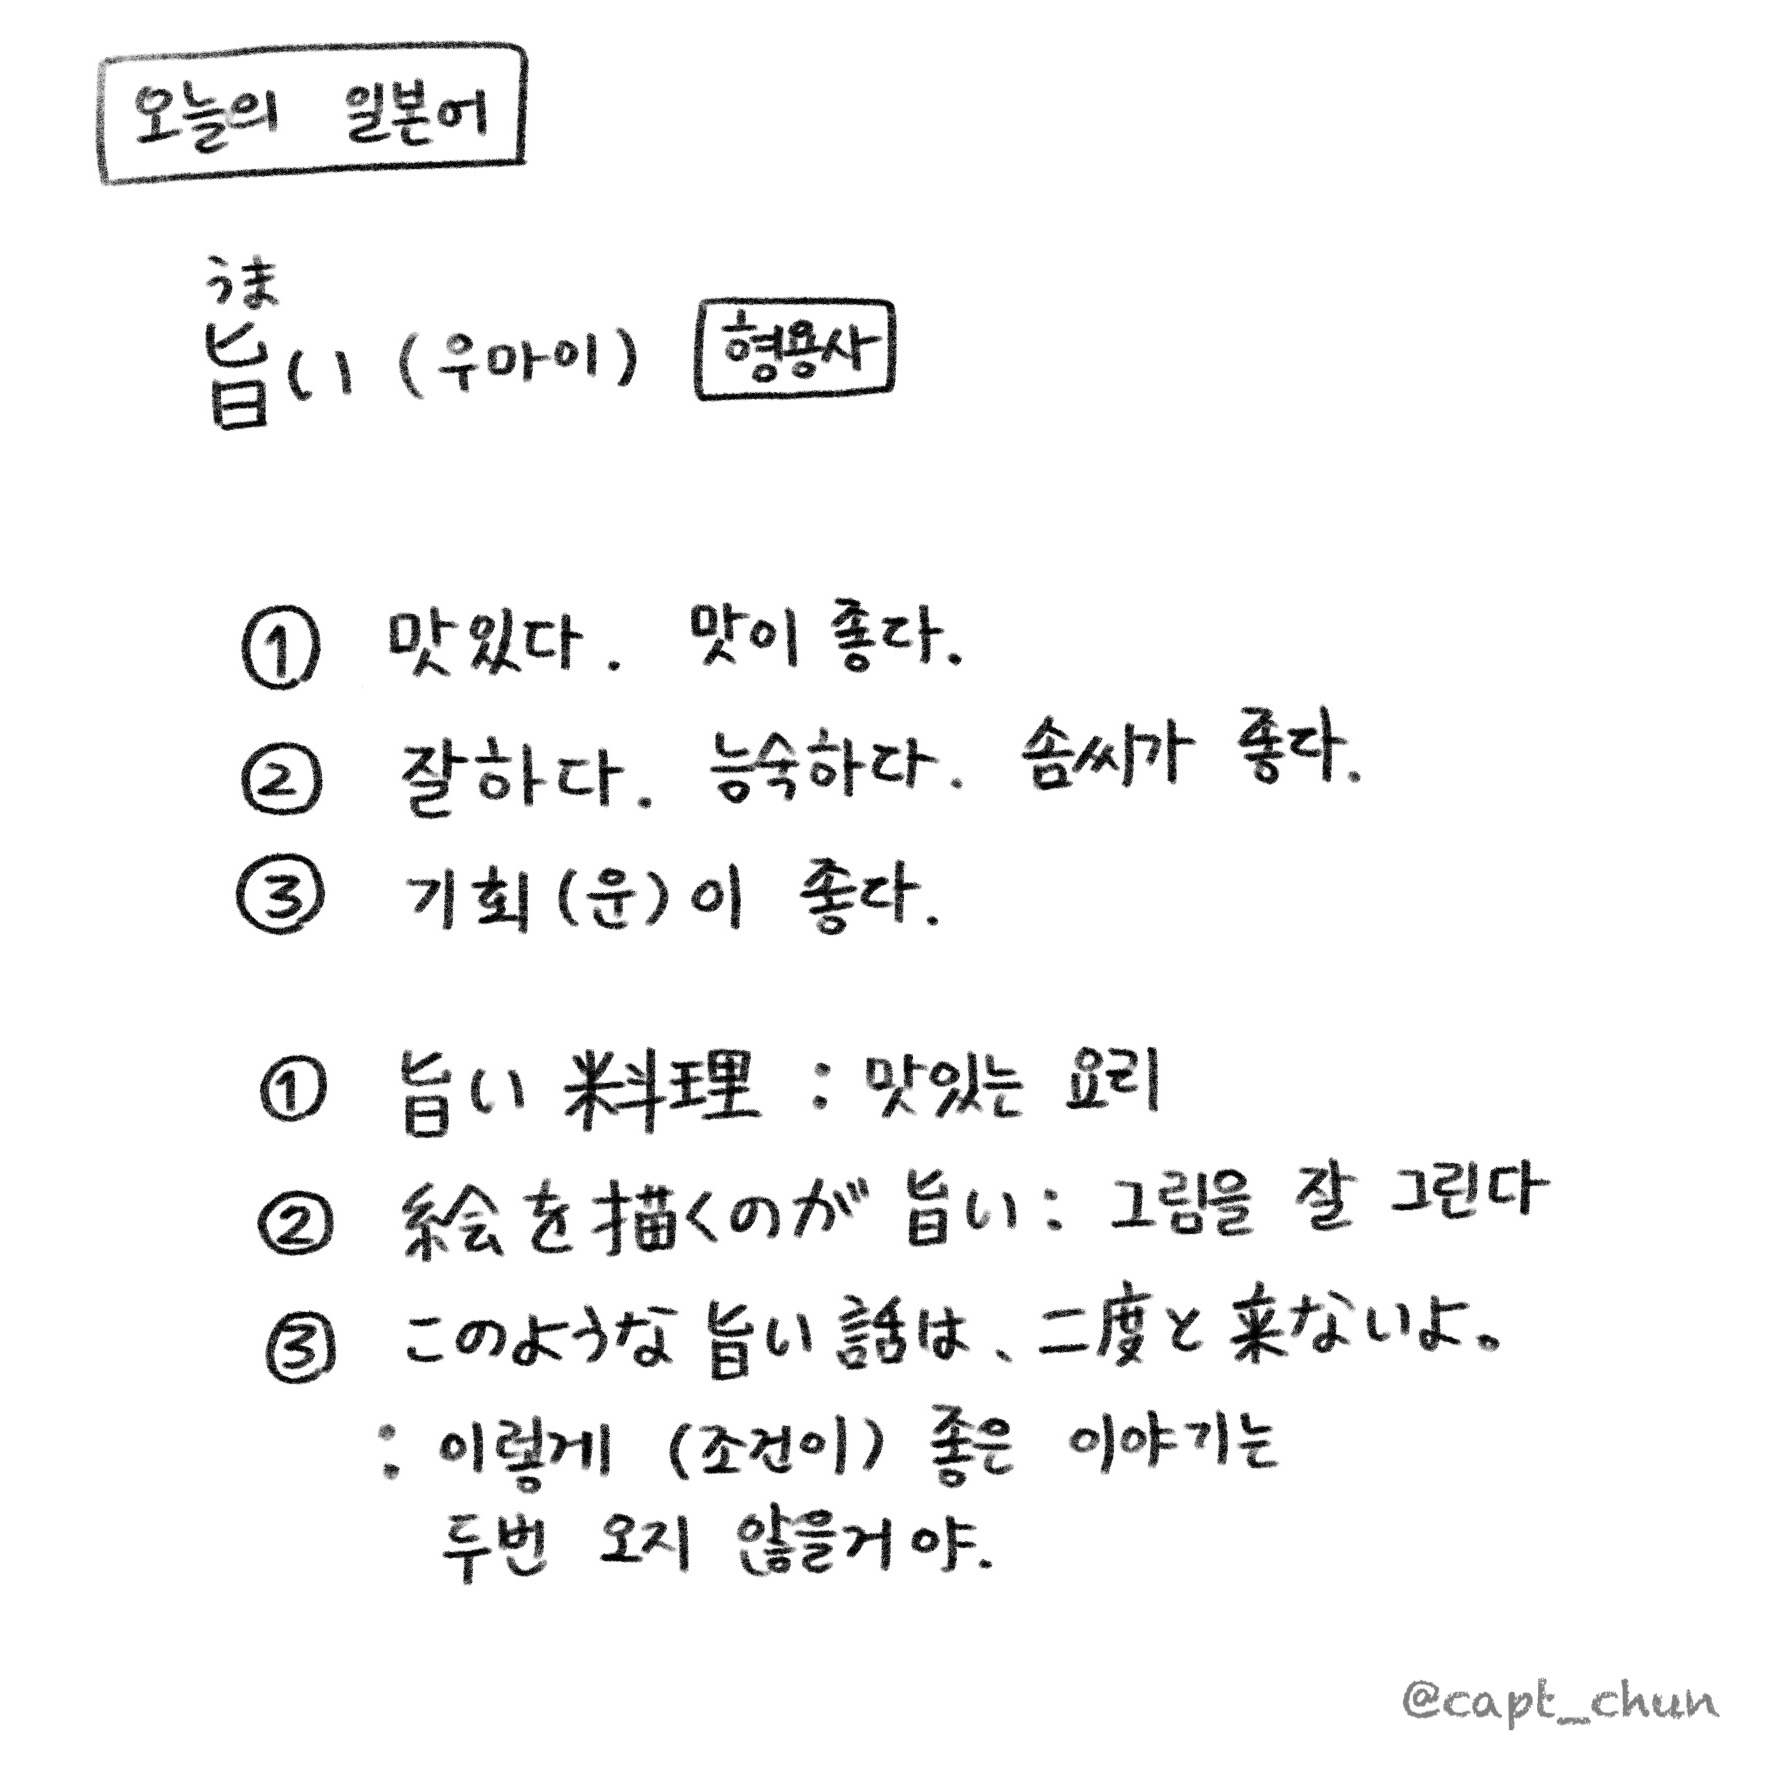 오늘의 일본어
うま
旨い (우마이) 형용사
① 맛있다. 맛이 좋다.
② 잘하다. 능숙하다. 솜씨가 좋다.
③ 기회(운)이 좋다.
① 旨い 料理 : 맛있는 요리
② 絵を描くのが 旨い : 그림을 잘 그린다
③ このような 旨い 話は、二度と 来ないよ。
: 이렇게 (조건이) 좋은 이야기는
두번 오지 않을거야.
@capt_chun